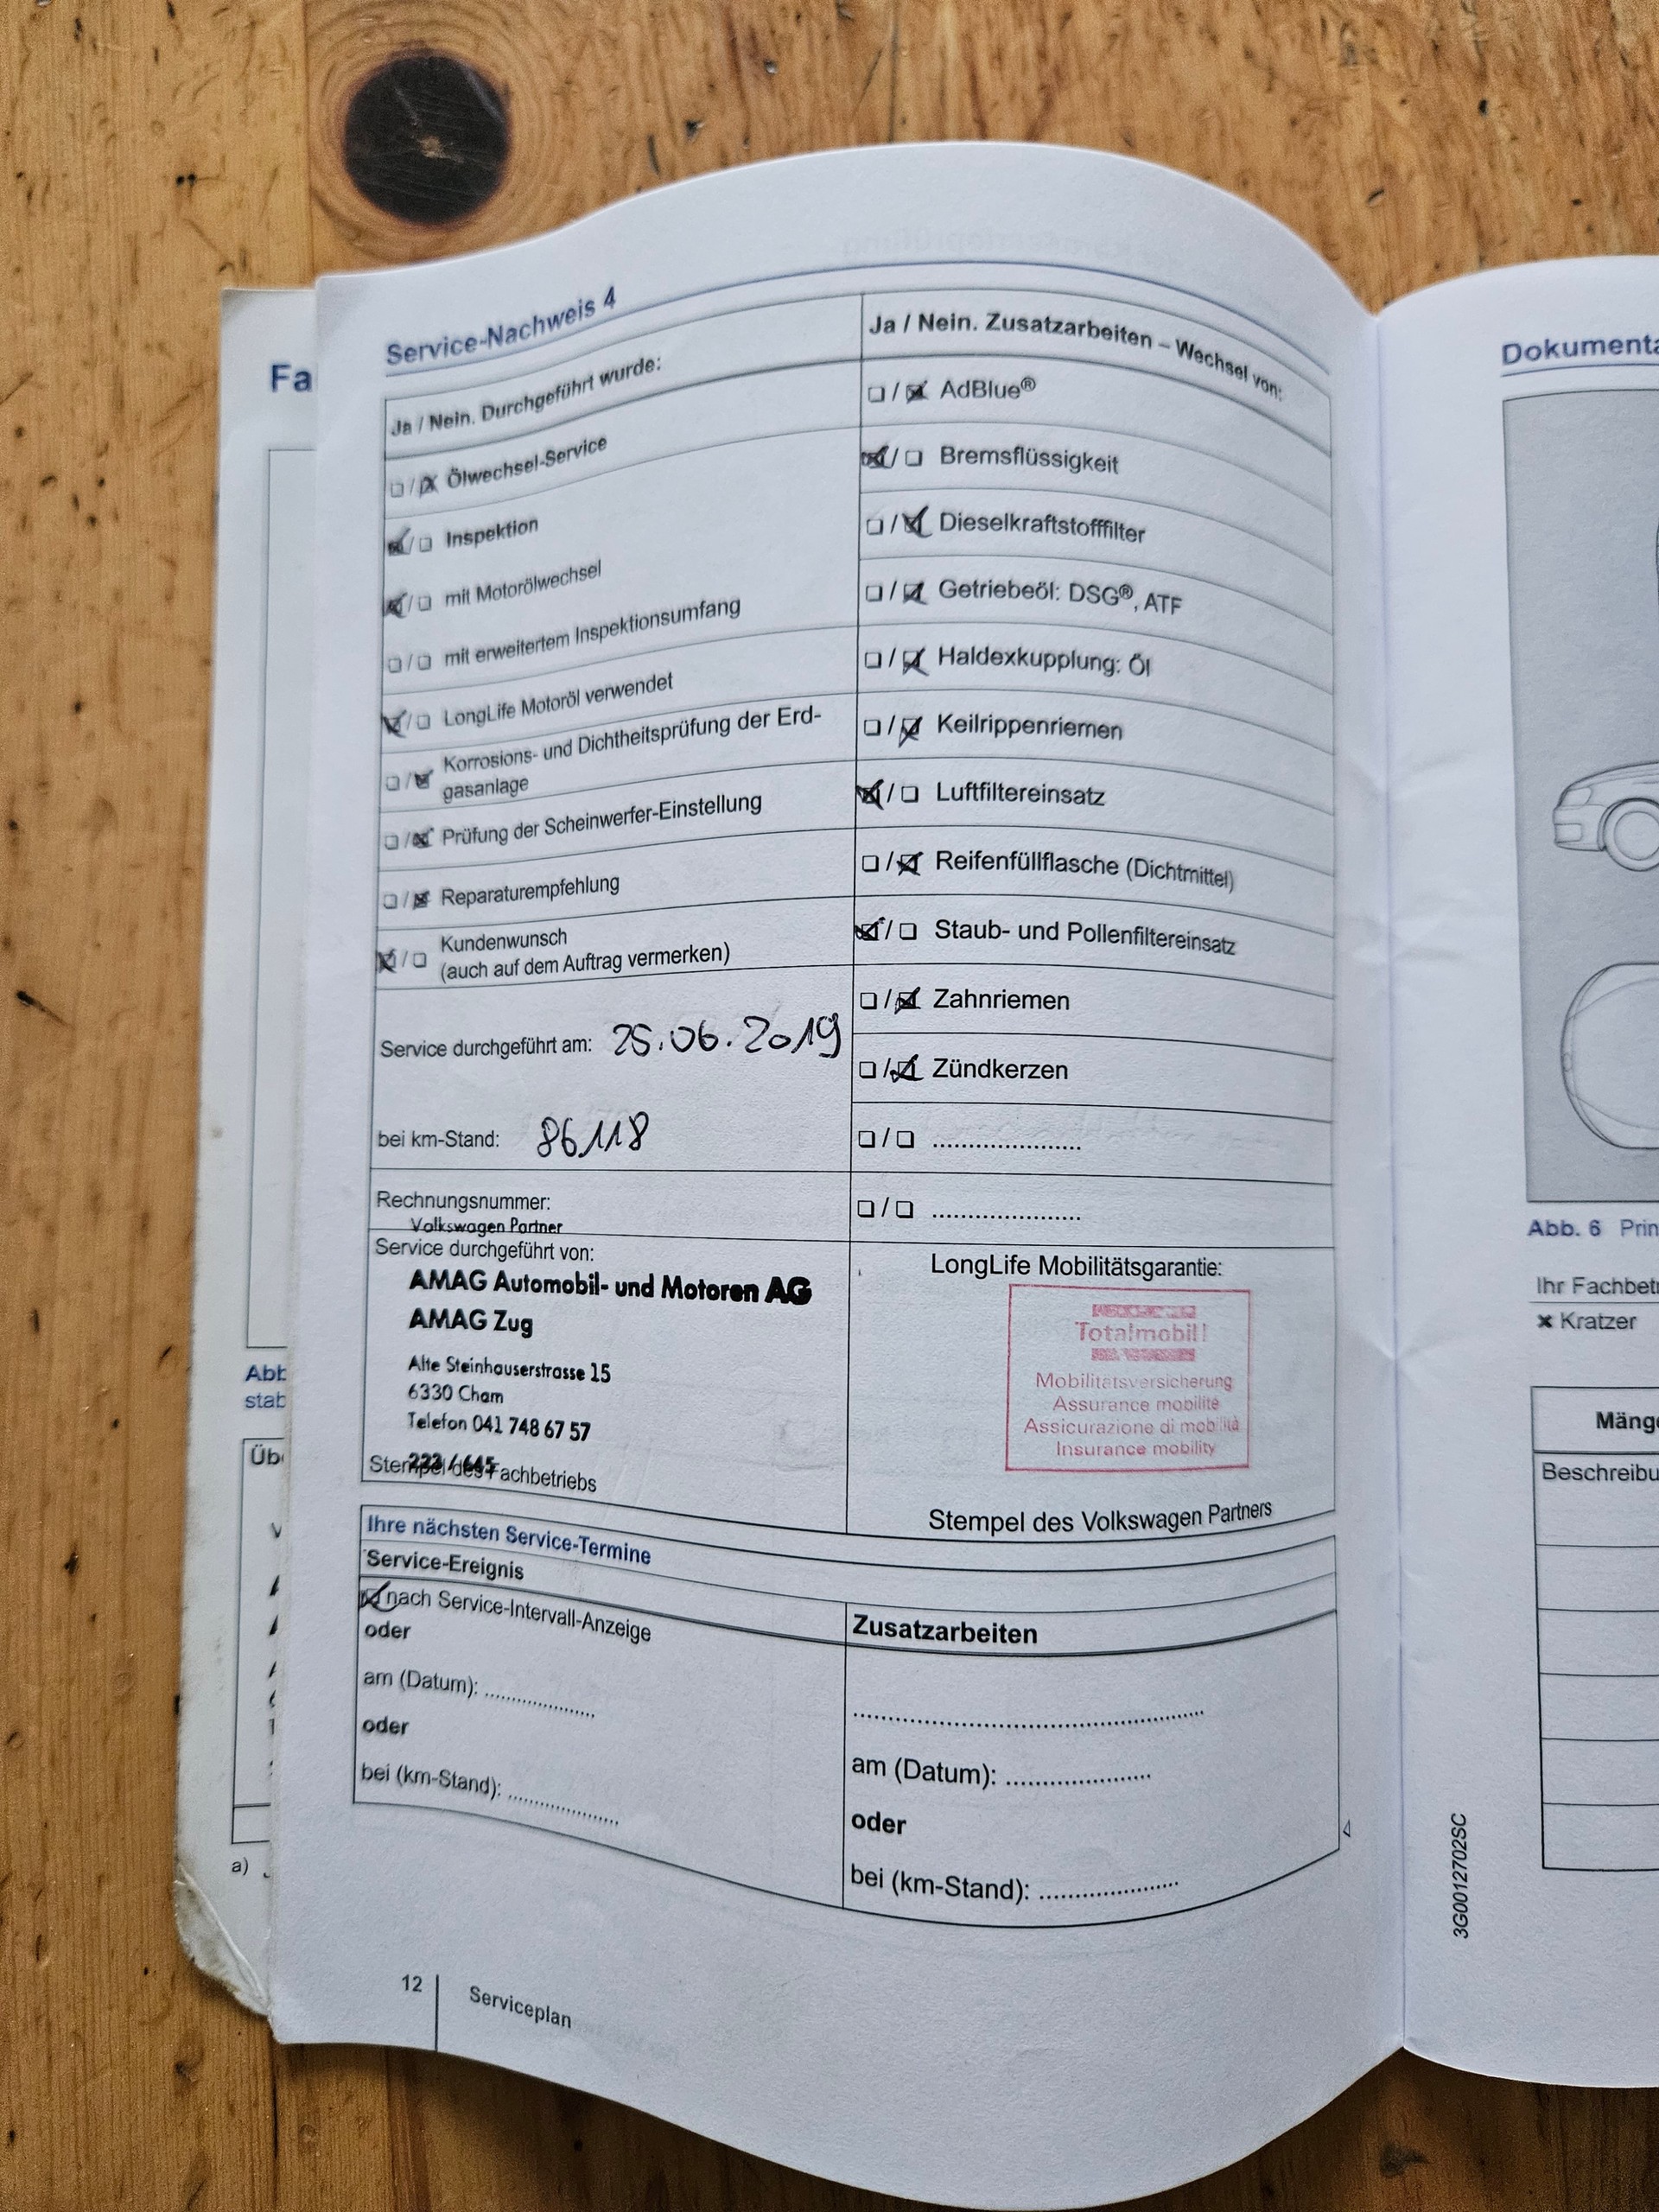 Fa
Service-Nachweis 4
Ja / Nein. Durchgeführt wurde:
☐ / ☒ Ölwechsel-Service
☒ / ☐ Inspektion
☒ / ☐ mit Motorölwechsel
☐ / ☐ mit erweitertem Inspektionsumfang
☒ / ☐ LongLife Motoröl verwendet
☐ / ☒ Korrosions- und Dichtheitsprüfung der Erd-
gasanlage
☐ / ☒ Prüfung der Scheinwerfer-Einstellung
☐ / ☒ Reparaturempfehlung
☒ / ☐ Kundenwunsch
(auch auf dem Auftrag vermerken)
Service durchgeführt am: 25.06.2019
bei km-Stand: 86118
Rechnungsnummer:
Volkswagen Partner
Service durchgeführt von:
AMAG Automobil- und Motoren AG
AMAG Zug
Alte Steinhauserstrasse 15
6330 Cham
Telefon 041 748 67 57
222 / 645
Stempel des Fachbetriebs
Ja / Nein. Zusatzarbeiten – Wechsel von:
☐ / ☒ AdBlue®
☒ / ☐ Bremsflüssigkeit
☐ / ☒ Dieselkraftstofffilter
☐ / ☒ Getriebeöl: DSG®, ATF
☐ / ☒ Haldexkupplung: Öl
☐ / ☒ Keilrippenriemen
☒ / ☐ Luftfiltereinsatz
☐ / ☒ Reifenfüllflasche (Dichtmittel)
☒ / ☐ Staub- und Pollenfiltereinsatz
☐ / ☒ Zahnriemen
☐ / ☒ Zündkerzen
☐ / ☐ .....................
☐ / ☐ .....................
LongLife Mobilitätsgarantie:
Totalmobil!
Mobilitätsversicherung
Assurance mobilité
Assicurazione di mobilità
Insurance mobility
Stempel des Volkswagen Partners
Ihre nächsten Service-Termine
Service-Ereignis
☒ nach Service-Intervall-Anzeige
oder
am (Datum): ...................
oder
bei (km-Stand): ...................
Zusatzarbeiten
..................................................
am (Datum): .....................
oder
bei (km-Stand): ....................
12
Serviceplan
Abb
stab
Üb
a)
Dokumenta
Abb. 6 Prin
Ihr Fachbetr
✖ Kratzer
Mänge
Beschreibu
3G0012702SC